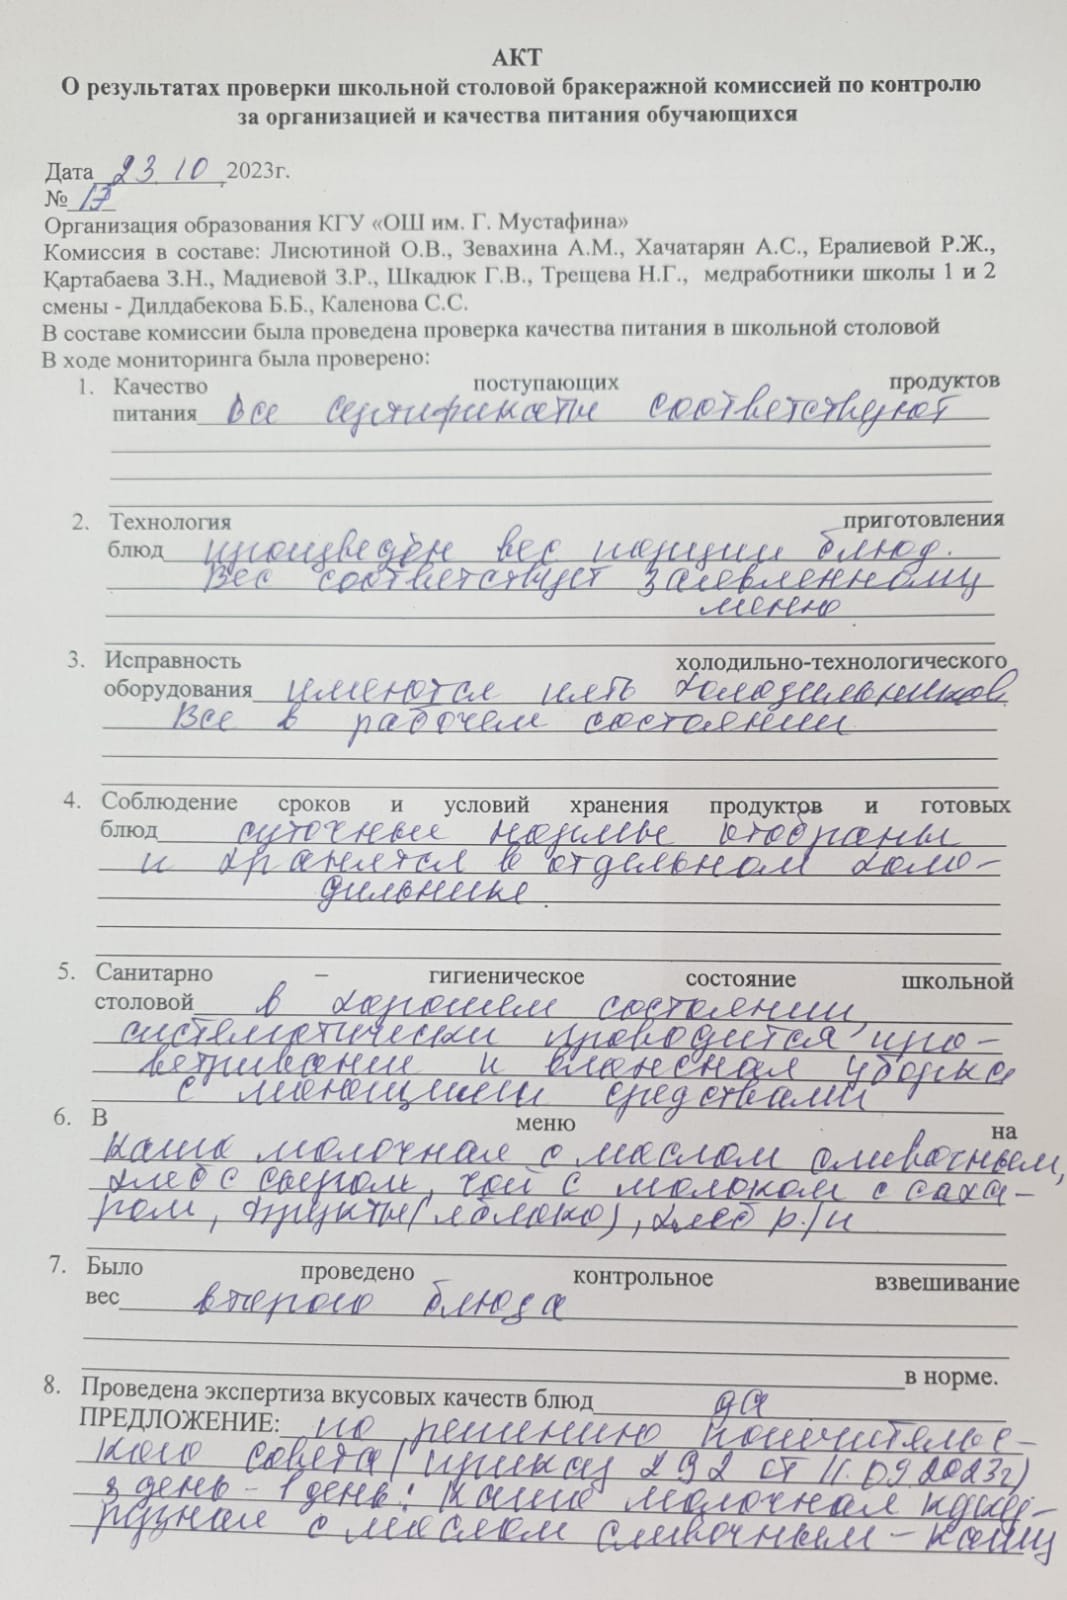 АКТ
О результатах проверки школьной столовой бракеражной комиссией по контролю
за организацией и качества питания обучающихся
Дата 23.10 2023г.
№ 17
Организация образования КГУ «ОШ им. Г. Мустафина»
Комиссия в составе: Лисютиной О.В., Зевахина А.М., Хачатарян А.С., Ералиевой Р.Ж.,
Қартабаева З.Н., Мадиевой З.Р., Шкадюк Г.В., Трещева Н.Г., медработники школы 1 и 2
смены - Дилдабекова Б.Б., Каленова С.С.
В составе комиссии была проведена проверка качества питания в школьной столовой
В ходе мониторинга была проверено:
1. Качество поступающих продуктов
питания все сертификаты соответствуют
2. Технология приготовления
блюд произведён вес порции блюд.
Вес соответствует заявленному
меню
3. Исправность холодильно-технологического
оборудования имеются пять холодильников.
Все в рабочем состоянии
4. Соблюдение сроков и условий хранения продуктов и готовых
блюд суточные отобраны
и хранятся в отдельном холо-
дильнике.
5. Санитарно – гигиеническое состояние школьной
столовой в хорошем состоянии,
систематически проводится про-
ветривание и влажная уборка
с моющими средствами
6. В меню на
каша молочная с маслом сливочным,
хлеб с сыром, чай с молоком с саха-
ром, фрукты (яблоко), хлеб р/п
7. Было проведено контрольное взвешивание
вес второго блюда
в норме.
8. Проведена экспертиза вкусовых качеств блюд да
ПРЕДЛОЖЕНИЕ: по решению попечительс-
кого совета (приказ 292 от 11.09.2023г)
з день - 1 день: каша молочная куку-
рузная с маслом сливочным - кашу